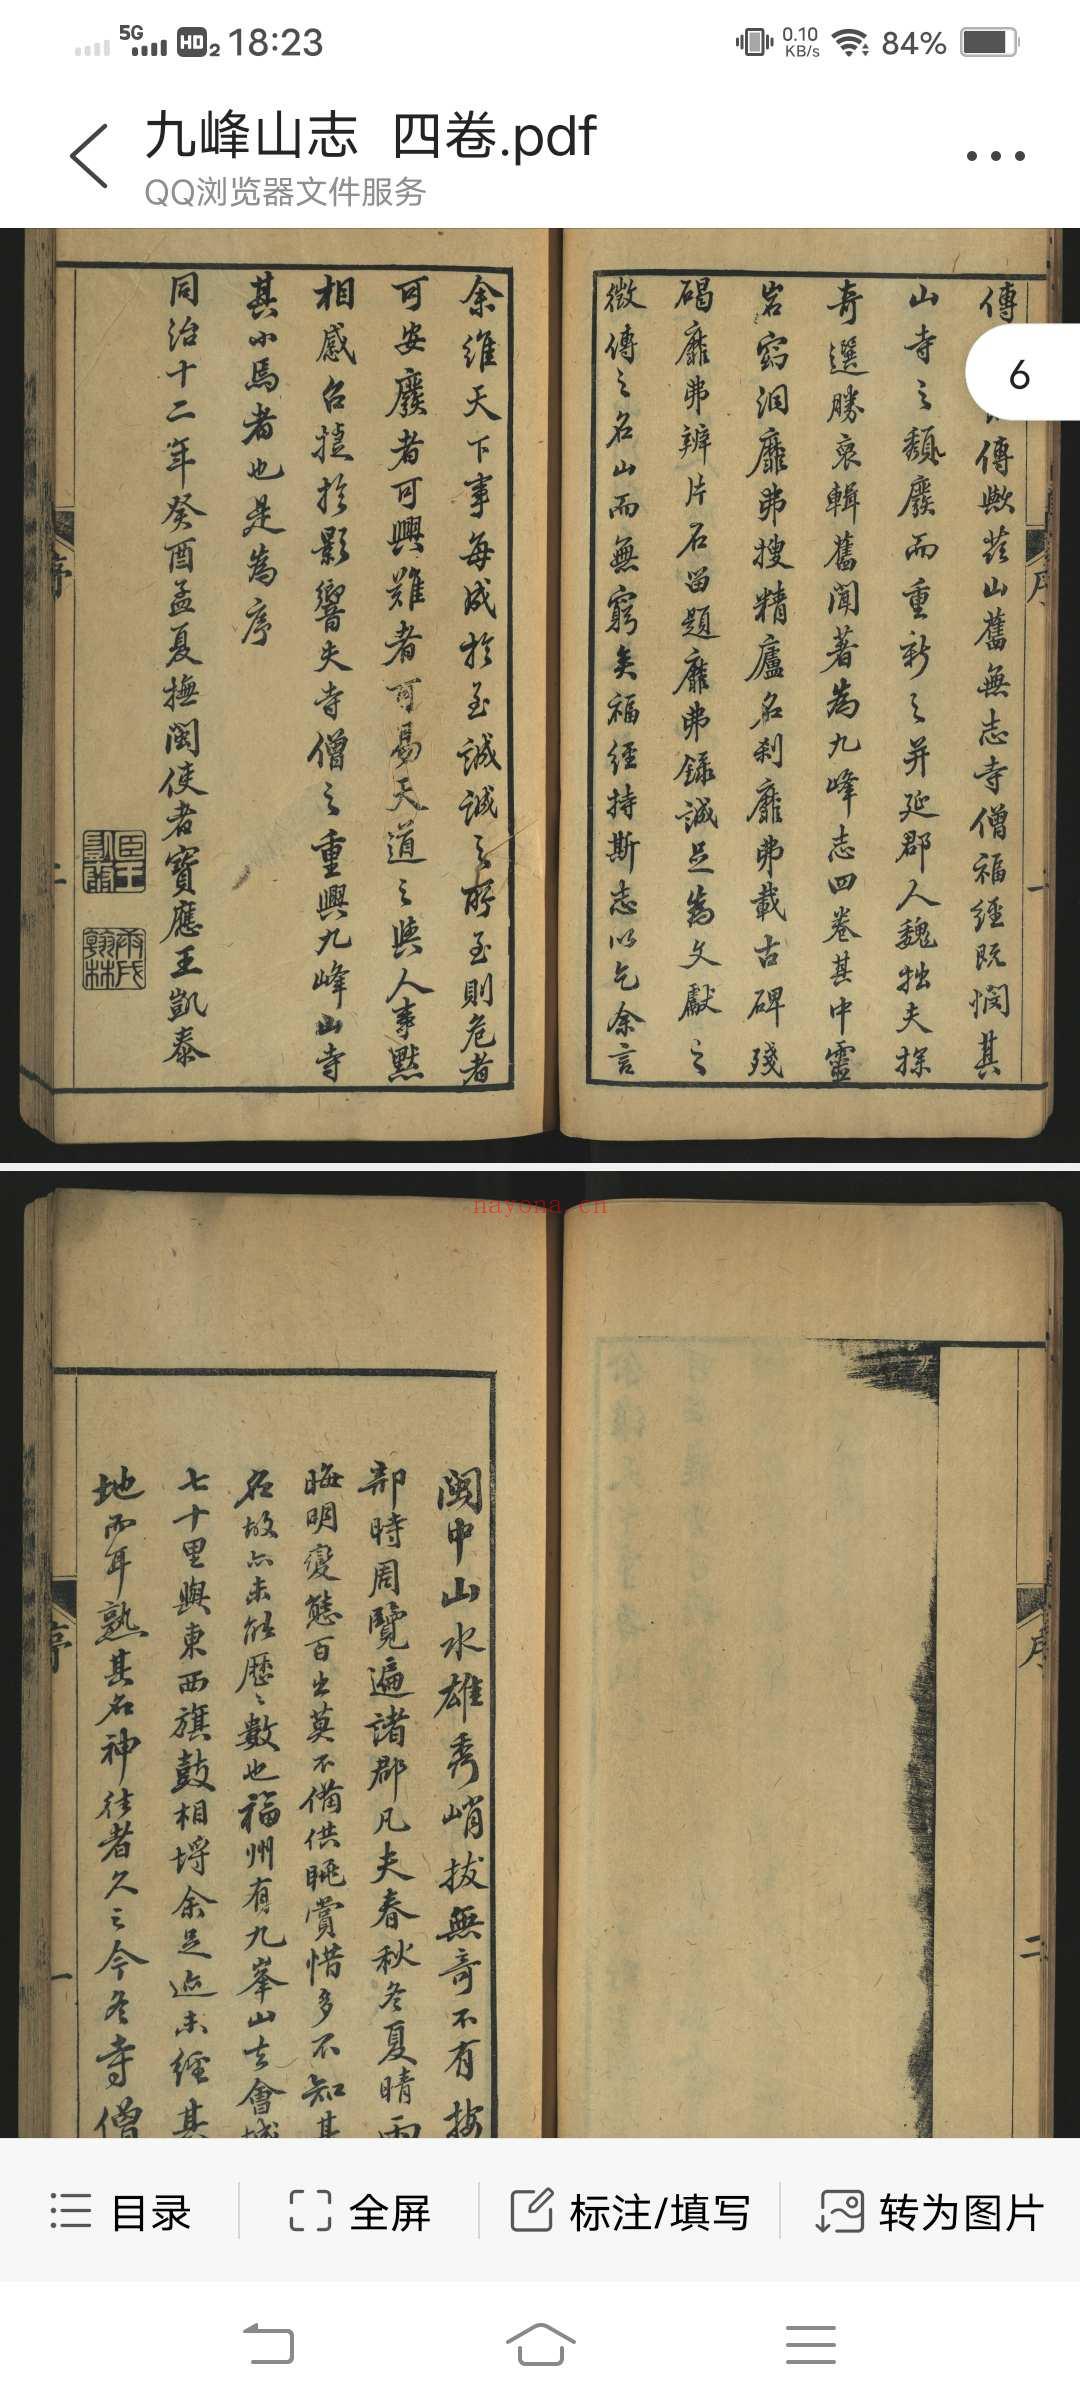 5G HD 2 18:23 0.10 KB/s 84%
九峰山志 四卷.pdf
QQ浏览器文件服务
6
傳傳歟茲山舊無志寺僧福經既憫其
山寺之頹廢而重新之并延郡人魏拙夫探
奇選勝裒輯舊聞著為九峰志四卷其中靈
岩窈洞靡弗搜精廬名刹靡弗載古碑殘
碣靡弗辨片石留題靡弗錄誠足為文獻之
微傳之名山而無窮矣福經持斯志以乞余言
余維天下事每成於至誠誠之所至則危者
可安廢者可興難者可易天道之與人事默
相感召捷於影響夫寺僧之重興九峰山寺
其小焉者也是為序
同治十二年癸酉孟夏撫閩使者寶應王凱泰
序
一
序
二
nayona.cn
閩中山水雄秀峭拔無奇不有按
部時周覽遍諸郡凡夫春秋冬夏晴雨
晦明變態百出莫不備供眺賞惜多不知其
名故亦未能歷歷數也福州有九峯山去會城
七十里與東西旗鼓相埒余足迹未經其
地而耳熟其名神往者久之今冬寺僧
序
一
序
二
目录 全屏 标注/填写 转为图片